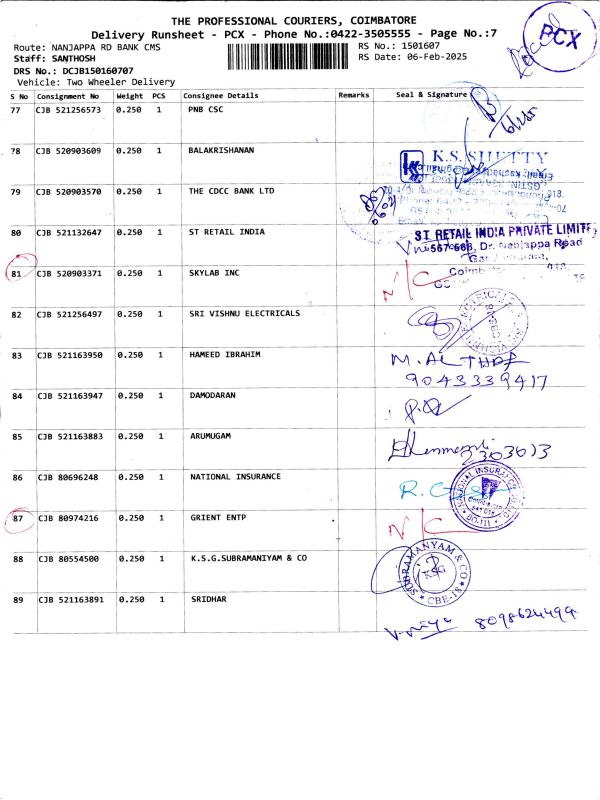 THE PROFESSIONAL COURIERS, COIMBATORE
Delivery Runsheet - PCX - Phone No.:0422-3505555 - Page No.:7
PCX
Route: NANJAPPA RD BANK CMS
RS No.: 1501607
Staff: SANTHOSH
RS Date: 06-Feb-2025
DRS No.: DCJB150160707
Vehicle: Two Wheeler Delivery
S No Consignment No Weight PCS Consignee Details Remarks Seal & Signature
77 CJB 521256573 0.250 1 PNB CSC
78 CJB 520903609 0.250 1 BALAKRISHANAN
K.S. SHETTY
79 CJB 520903570 0.250 1 THE CDCC BANK LTD
80 CJB 521132647 0.250 1 ST RETAIL INDIA
ST RETAIL INDIA PRIVATE LIMITE
567-568, Dr. Nanjappa Road
81 CJB 520903371 0.250 1 SKYLAB INC N/C
82 CJB 521256497 0.250 1 SRI VISHNU ELECTRICALS
83 CJB 521163950 0.250 1 HAMEED IBRAHIM
9043339417
84 CJB 521163947 0.250 1 DAMODARAN
85 CJB 521163883 0.250 1 ARUMUGAM
86 CJB 80696248 0.250 1 NATIONAL INSURANCE
87 CJB 80974216 0.250 1 GRIENT ENTP N/C
88 CJB 80554500 0.250 1 K.S.G.SUBRAMANIYAM & CO
SUBRAMANYAM & CO
KSG
CBE-18
89 CJB 521163891 0.250 1 SRIDHAR
8098624499